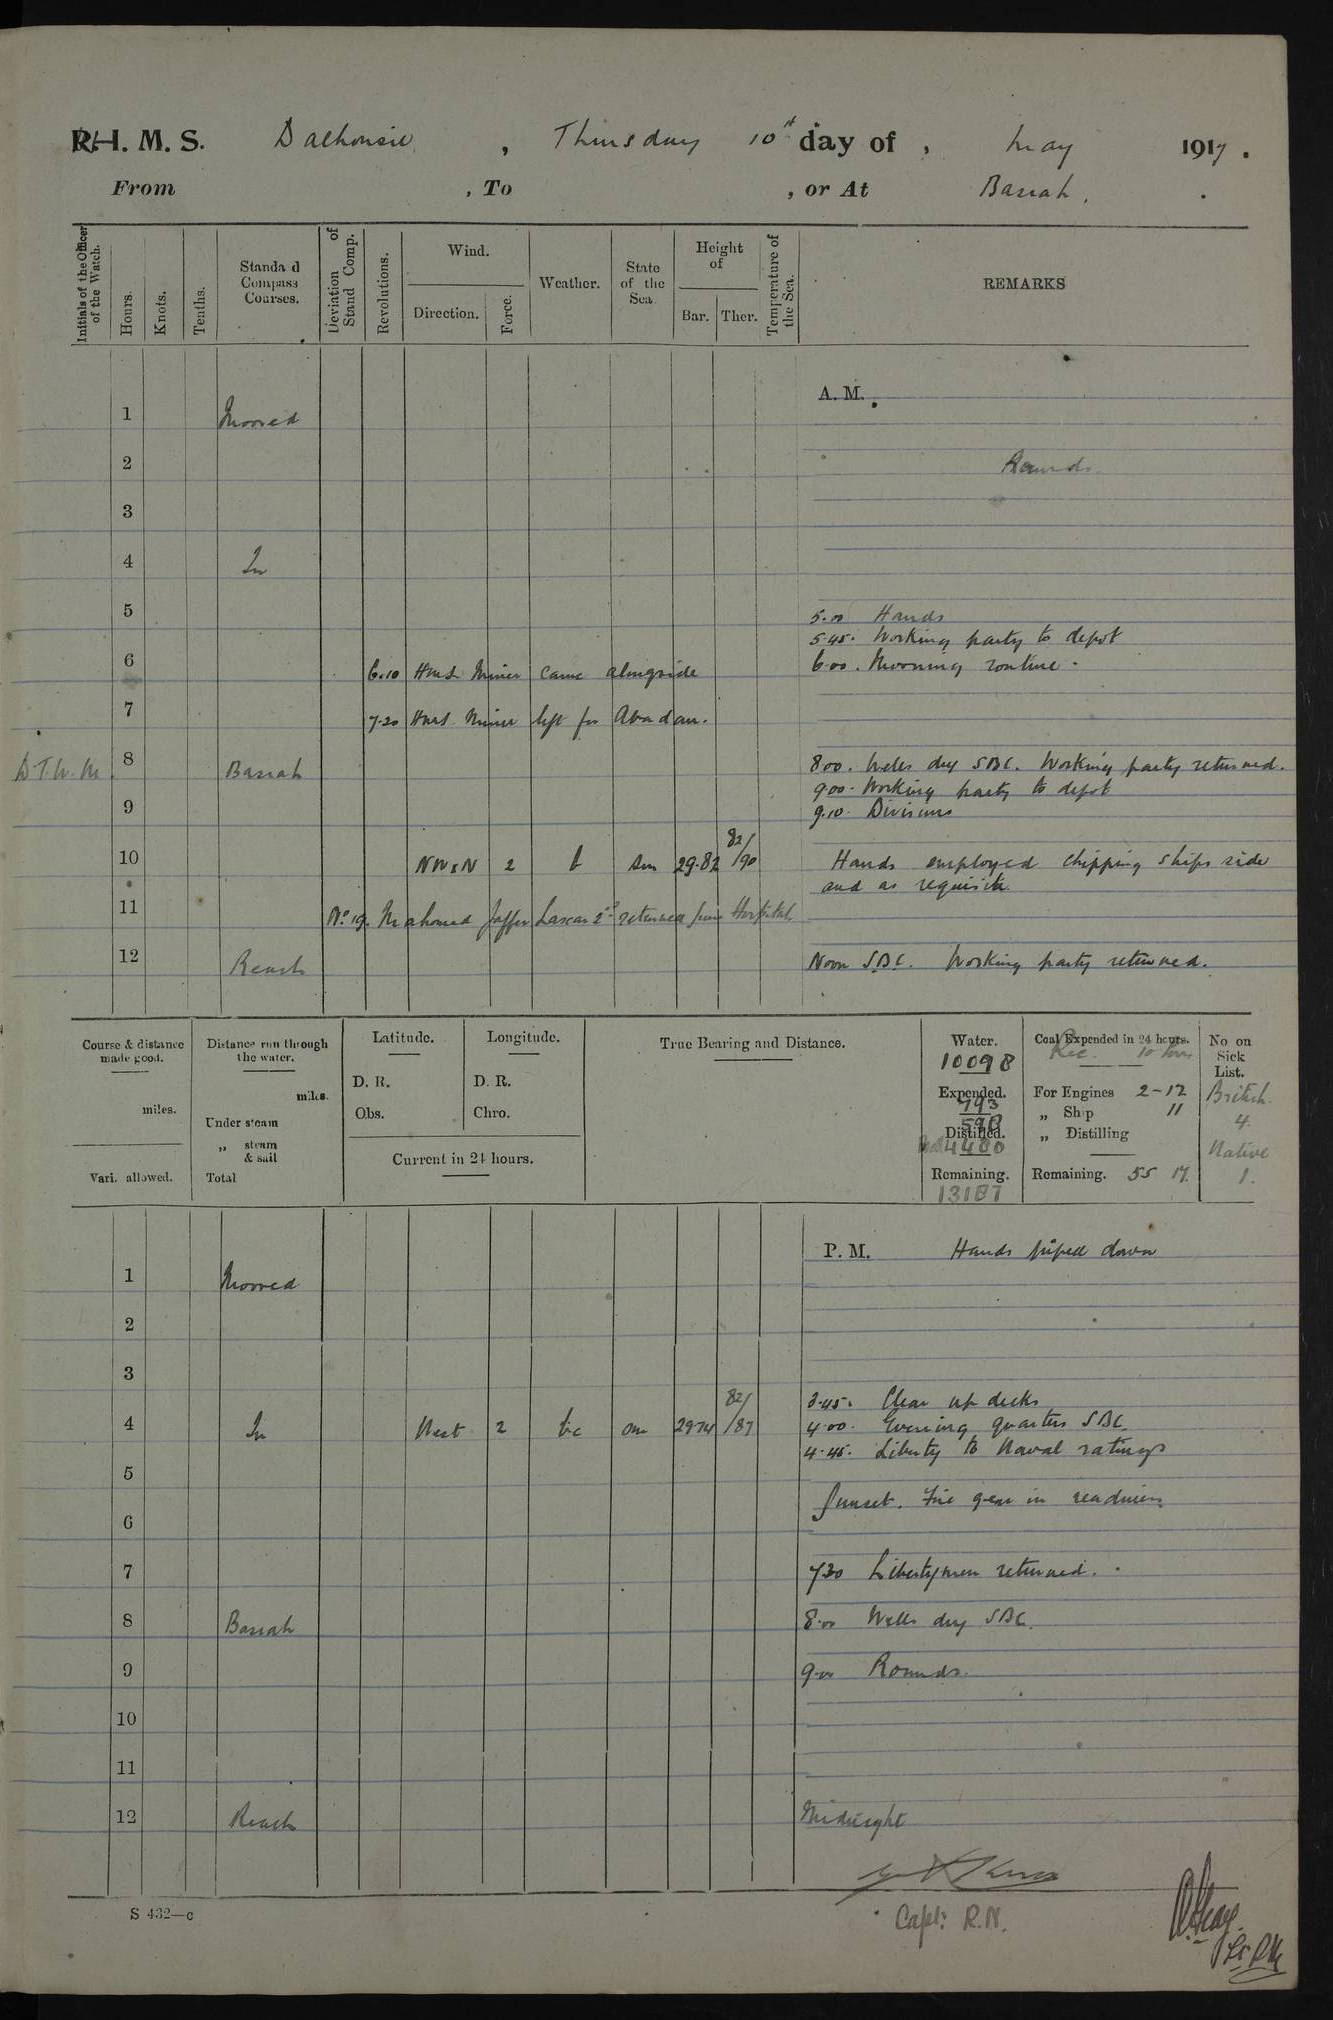 R.I.M.S. Dalhousie, Thursday 10th day of, May 1917.
From , To , or At Basrah.
Initials of the Officer of the Watch.
Hours.
Knots.
Tenths.
Standa d Compass Courses.
Deviation of Stand Comp.
Revolutions.
Wind.
Direction.
Force.
Weather.
State of the Sea.
Height of
Bar.
Ther.
Temperature of the Sea.
REMARKS
A. M.
1 Moored
2 Rounds.
3
4 In
5 5.00 Hands
5.45. Working party to depot
6 6.00. Morning routine.
6.10 H.M.S. Miner came alongside
7 7.20 H.M.S. Miner left for Abadan.
D.T.W.M. 8 Basrah 8.00. Wells dry S.B.C. Working party returned.
9.00. Working party to depot
9 9.10. Divisions
10 NW x N 2 b sm 29.82 82/90 Hands employed chipping ships side
and as requisite.
11 No. 19. Mahomed Jaffer Lascar 2nd returned from Hospital
12 Reach Noon S.B.C. Working party returned.
Course & distance made good.
miles.
Vari. allowed.
Distance run through the water.
miles.
Under steam
„ steam & sail
Total
Latitude.
D. R.
Obs.
Longitude.
D. R.
Chro.
Current in 24 hours.
True Bearing and Distance.
Water.
10098
Expended.
793
590
Distilled.
4480
Remaining.
13187
Coal Expended in 24 hours.
Rec. 10 tons
For Engines 2-12
„ Ship 11
„ Distilling
Remaining. 55 17.
No on Sick List.
British.
4.
Native
1.
P. M. Hands piped down
1 Moored
2
3
3.45. Clear up decks
4 In West 2 bc sm 29.74 82/87 4.00. Evening quarters S.B.C.
4.45. Liberty to Naval ratings
5
Sunset. Fire gear in readiness
6
7 7.30 Libertymen returned.
8 Basrah 8.00 Wells dry S.B.C.
9 9.00 Rounds.
10
11
12 Reach Midnight
Capt: R.N.
S 432—c